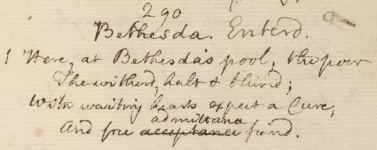 290
Bethesda. Enterd.
1 Here, at Bethesda's pool, the poor
The witherd, halt & blind;
With waiting hearts expect a Cure,
admittance
And free acceptance find.